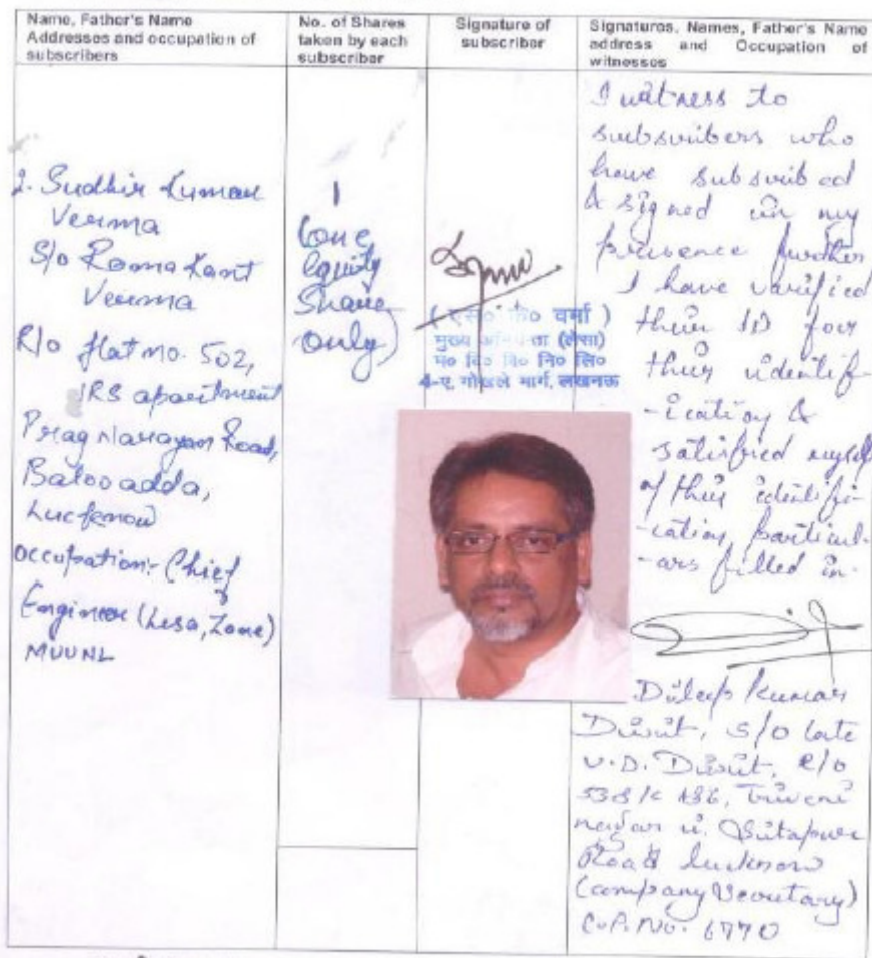 Name, Father's Name
Addresses and occupation of
subscribers
No. of Shares
taken by each
subscriber
Signature of
subscriber
Signatures, Names, Father's Name
address and Occupation of
witnesses
2. Sudhir Kumar
Verma
S/o Rama Kant
Verma
R/o flat no. 502,
JRS apartment
Prag Narayan Road,
Baloo adda,
Lucknow
occupation:- Chief
Engineer (Lesa, Zone)
MVVNL
1
(one
equity
Share
only)
वर्मा )
मुख्य (लेसा)
म० वि० वि० नि० लि०
4-ए, गोखले मार्ग, लखनऊ
I witness to
subscribers who
have subscribed
& signed in my
presence further
I have varified
their ID for
their identif-
-ication &
satisfied myself
of their identifi-
-cation, particul-
-ars filled in.
Dileep Kumar
Dixit, S/o late
V.D. Dixit, R/o
538 K Triveni
nagar Sitapur
Road Lucknow
(company Secretary)
C.P. No. 6770